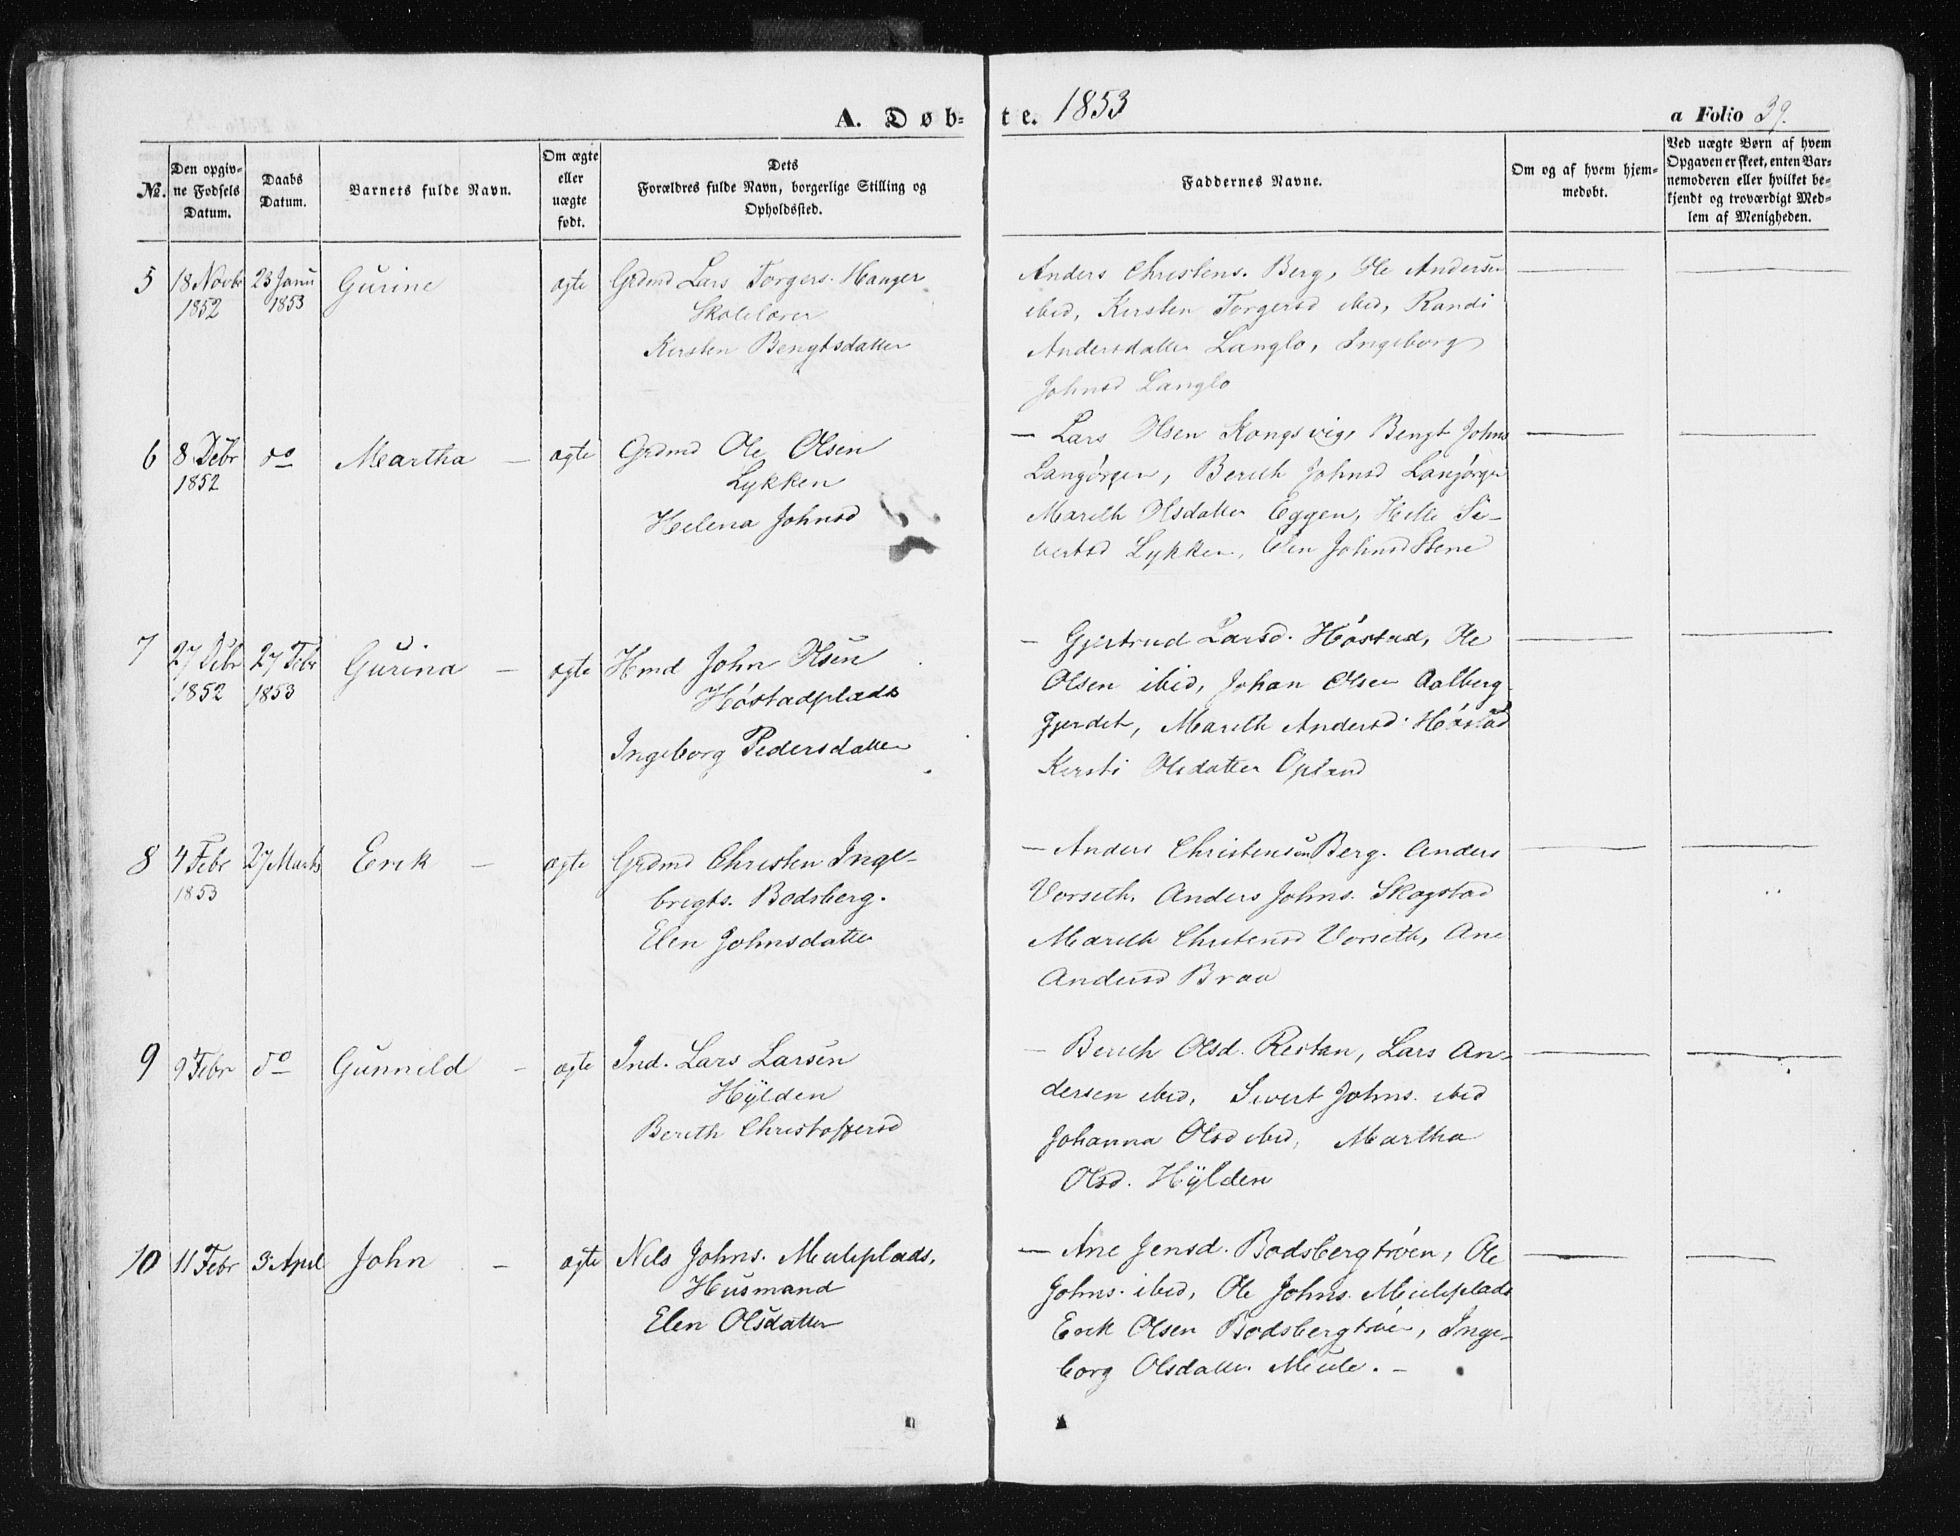 A. Døb-
te. 1853
a Folio 39.
No.
Den opgiv-
ne Fødsels
Datum.
Daabs
Datum.
Barnets fulde Navn.
Om ægte
eller
uægte
født.
Dets
Forældres fulde Navn, borgerlige Stilling og
Opholdssted.
Faddernes Navne.
Om og af hvem hjem-
medøbt.
Ved uægte Børn af hvem
Opgaven er skeet, enten Bar-
nemoderen eller hvilket be-
kjendt og troværdigt Med-
lem af Menigheden.
5 18 Novbr 23 Janu Gurine ægte Grdmd Lars Torgers. Hanger
1852 1853 Skolelærer
Kirsten Bengtsdatter
Anders Christens. Berg, Ole Andersen
ibid, Kirsten Torgersd ibid, Randi
Andersdatter Langlo, Ingeborg
Johnsd Langlo
6 8 Debr do Martha – ægte Grdmd Ole Olsen
1852 Lykken
Helena Johnsd
– Lars Olsen Kongsvig, Bengt Johns
Langørgen, Bereth Johnsd Langørgen
Mareth Olsdatter Eggen, Helle Si-
vertsd Lykken, Elen Johnsd Stene
7 27 Debr 27 Febr Gurina – ægte Hmd John Olsen
1852 1853 Høstadplads
Ingeborg Pedersdatter
– Gjertrud Larsd. Høstad, Ole
Olsen ibid, Johan Olsen Aalberg
gjerdet, Mareth Andersd. Høstad
Kersti Olsdatter Opland
8 4 Febr 27 Marts Erik – ægte Grdmd Christen Inge-
1853 brigts. Bodsberg.
Elen Johnsdatter
– Anders Christensen Berg. Anders
Vorseth, Anders Johns. Skogstad
Mareth Christensd Vorseth, Ane
Andersd Braa
9 9 Febr do Gunnild – ægte Ind. Lars Larsen
Hÿlden
Bereth Christoffersd
– Bereth Olsd. Restan, Lars An-
dersen ibid, Sivert Johns. ibid
Johanna Olsd ibid, Martha
Olsd. Hÿlden
10 11 Febr 3 April John – ægte Nils Johns. Muleplads,
Husmand
Elen Olsdatter
– Ane Jensd. Bodsbergtrøen, Ole
Johns. ibid, Ole Johns. Muleplads
Erik Olsen Bodsbergtrøen, Inge-
borg Olsdatter Mule. –